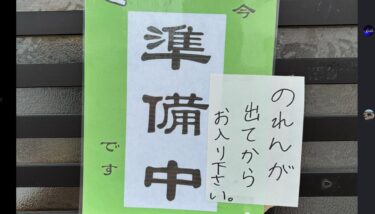 今
準備中
です
のれんが
出てから
お入り下さい。